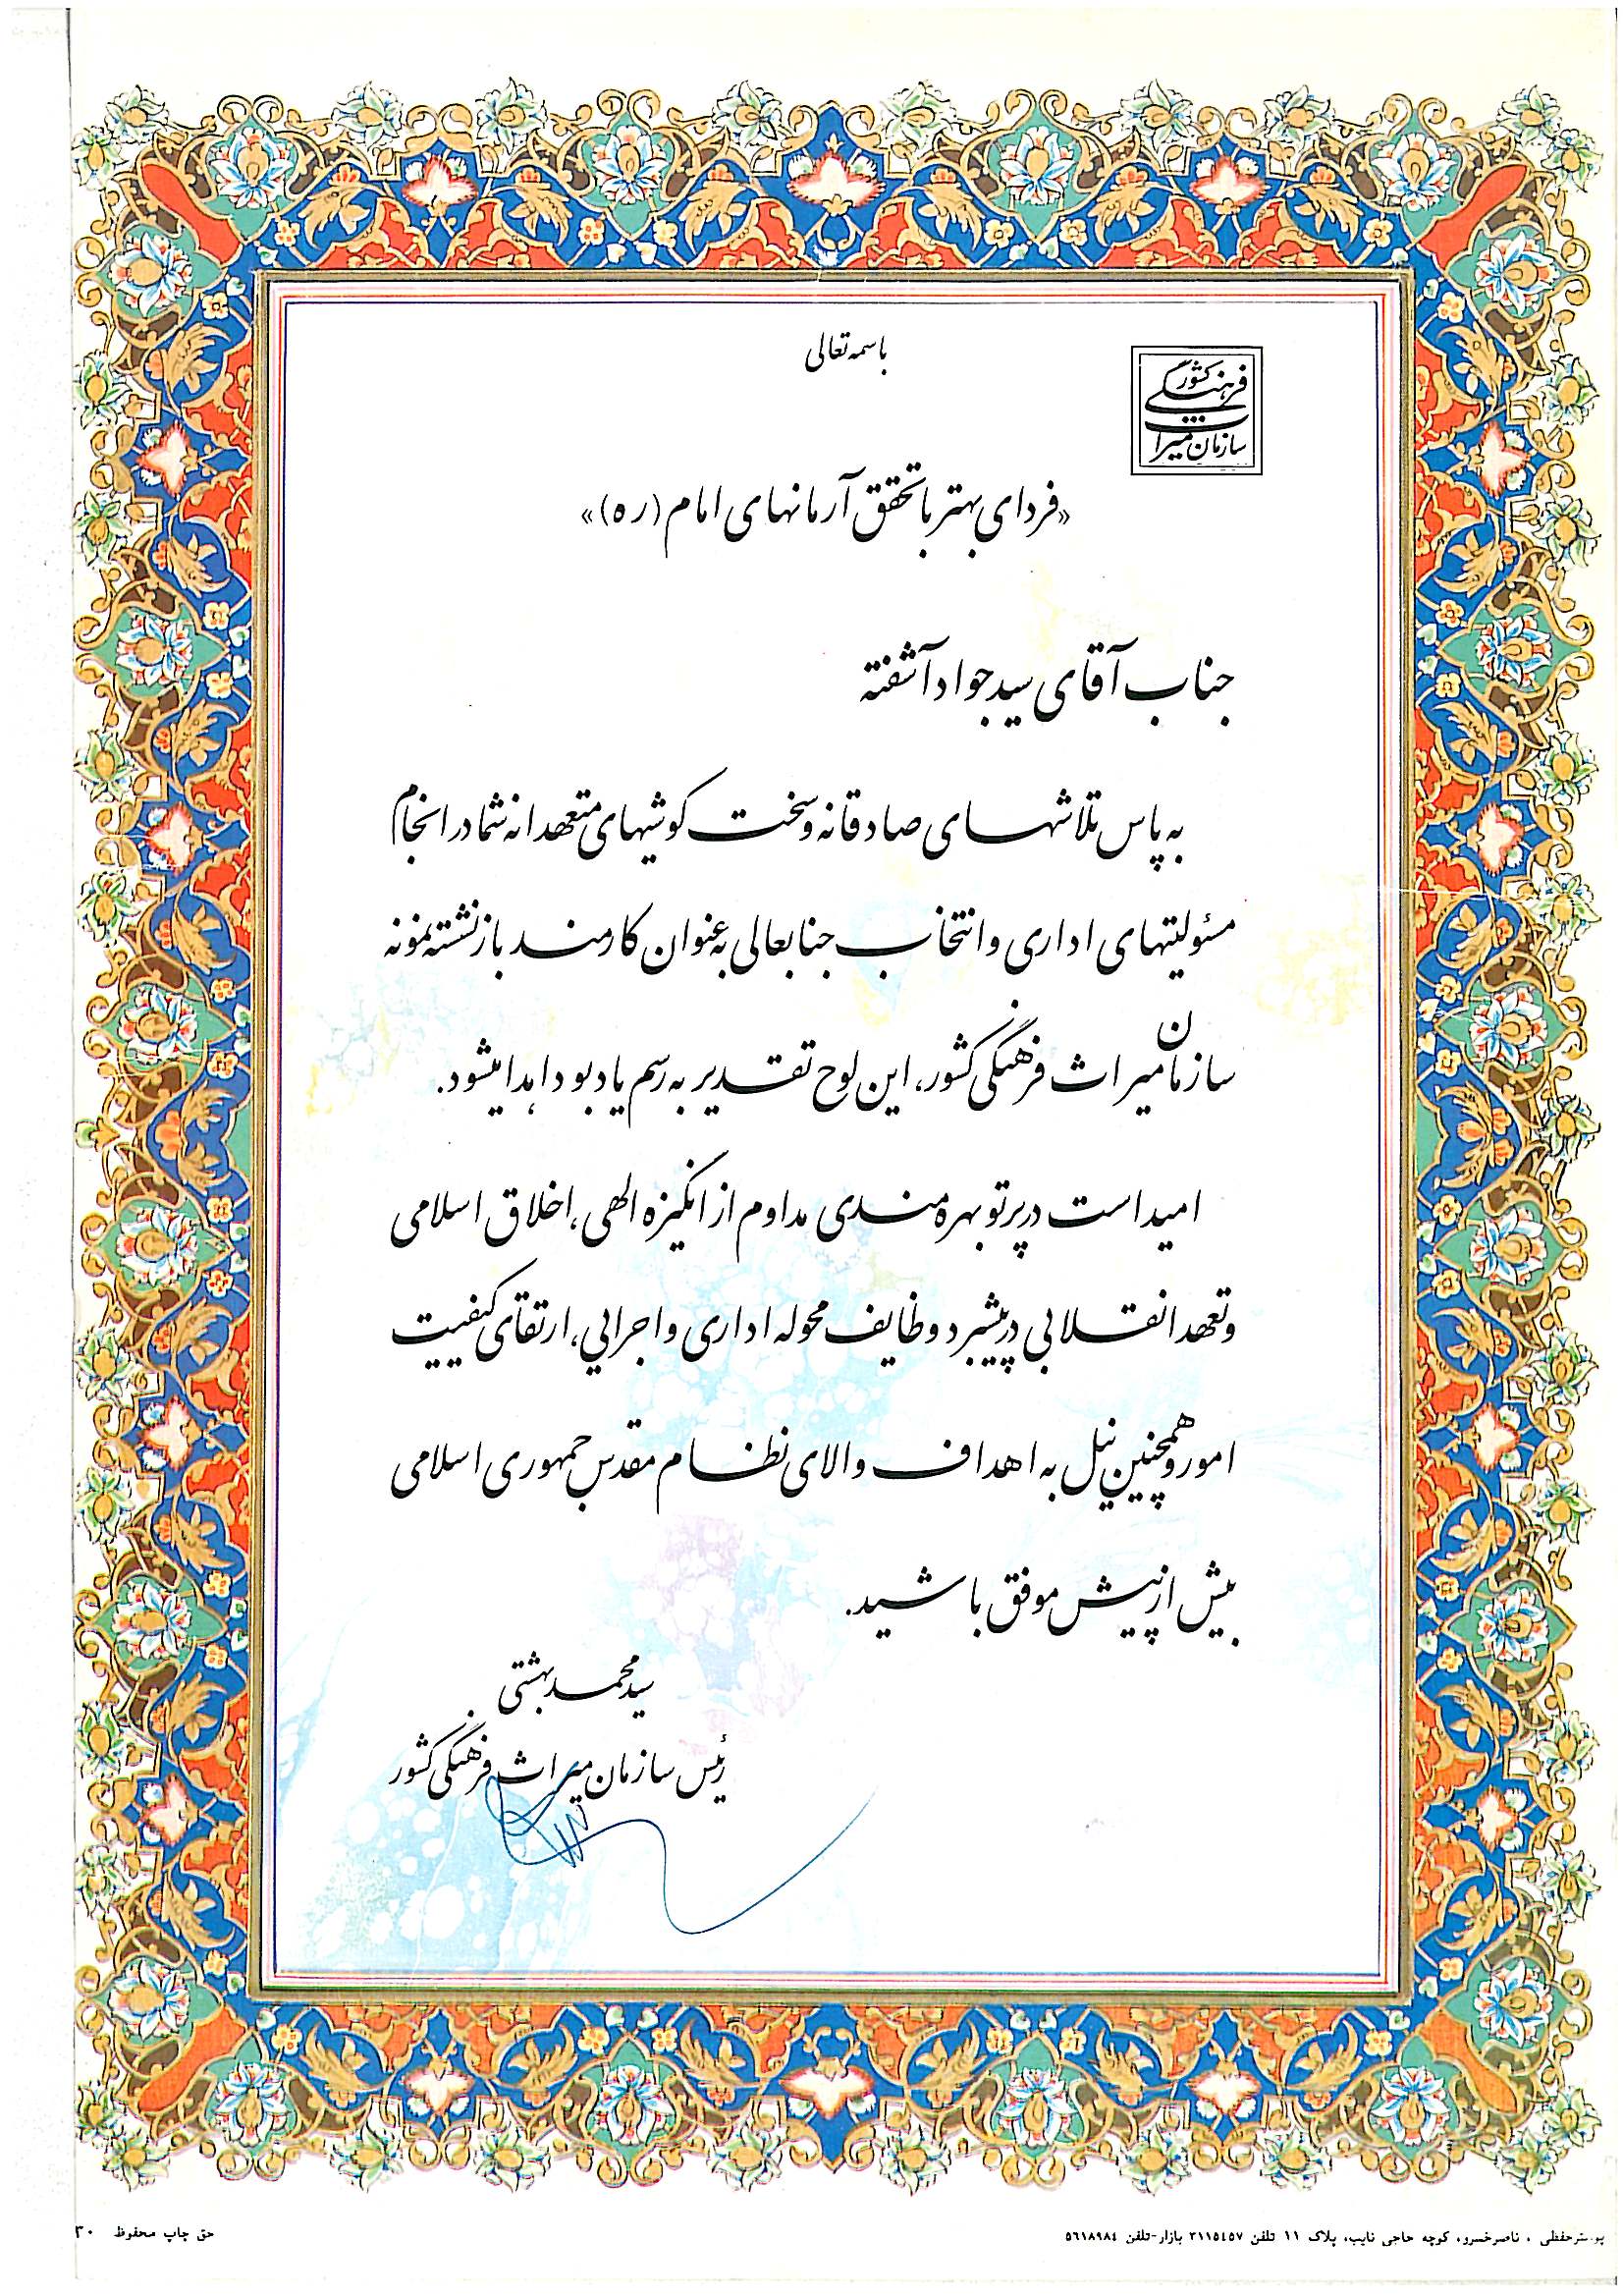 باسمه تعالی
سازمان میراث فرهنگی کشور
«فردای بهتر با تحقق آرمانهای امام (ره)»
جناب آقای سید جواد آشفته
به پاس تلاشهای صادقانه و سخت کوشیهای متعهدانه شما در انجام
مسئولیتهای اداری و انتخاب جنابعالی به عنوان کارمند بازنشسته نمونه
سازمان میراث فرهنگی کشور، این لوح تقدیر به رسم یادبود اهدا میشود.
امید است در پرتو بهره مندی مداوم از انگیزه الهی، اخلاق اسلامی
و تعهد انقلابی در پیشبرد وظایف محوله اداری و اجرایی، ارتقای کیفیت
امور و همچنین نیل به اهداف والای نظام مقدس جمهوری اسلامی
بیش از پیش موفق باشید.
سید محمد بهشتی
رئیس سازمان میراث فرهنگی کشور
پوسترحفظی ، ناصرخسرو، کوچه حاجی نایب، پلاک ۱۱ تلفن ۳۱۱۵٤۵۷ بازار-تلفن ۵٦۱۸۹۸٤
حق چاپ محفوظ ۳۰